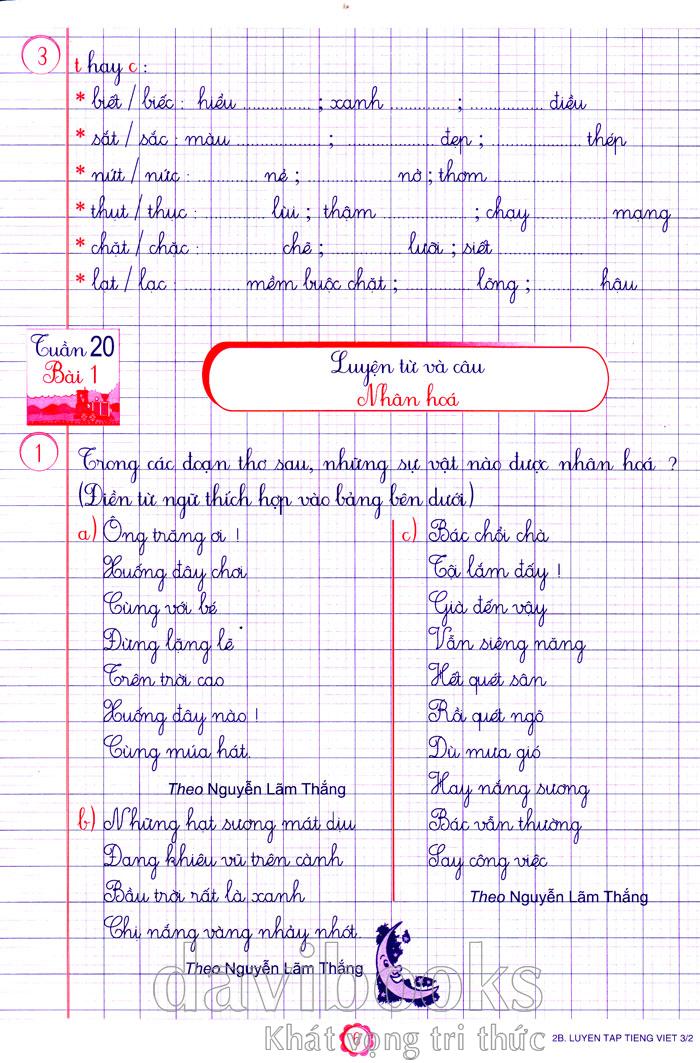 3 t hay c :
* biết / biếc : hiểu ............ ; xanh ............ ; ............ điều
* sắt / sắc : màu ............ ; ............ đẹp ; ............ thép
* nứt / nức : ............ nẻ ; ............ nở ; thơm ............
* thụt / thục : ............ lùi ; thậm ............ ; chạy ............ mạng
* chặt / chặc : ............ chẽ ; ............ lưỡi ; siết ............
* lạt / lạc : ............ mềm buộc chặt ; ............ lõng ; ............ hậu
Tuần 20
Bài 1
Luyện từ và câu
Nhân hoá
1 Trong các đoạn thơ sau, những sự vật nào được nhân hoá ?
(Điền từ ngữ thích hợp vào bảng bên dưới)
a) Ông trăng ơi !
Xuống đây chơi
Cùng với bé
Đừng lặng lẽ
Trên trời cao
Xuống đây nào !
Cùng múa hát.
Theo Nguyễn Lãm Thắng
b) Những hạt sương mát dịu
Đang khiêu vũ trên cành
Bầu trời rất là xanh
Chị nắng vàng nhảy nhót.
Theo Nguyễn Lãm Thắng
c) Bác chổi chà
Tội lắm đấy !
Già đến vậy
Vẫn siêng năng
Hết quét sân
Rồi quét ngõ
Dù mưa gió
Hay nắng sương
Bác vẫn thường
Say công việc
Theo Nguyễn Lãm Thắng
davibooks
Khát vọng tri thức
6
2B. LUYEN TAP TIENG VIET 3/2